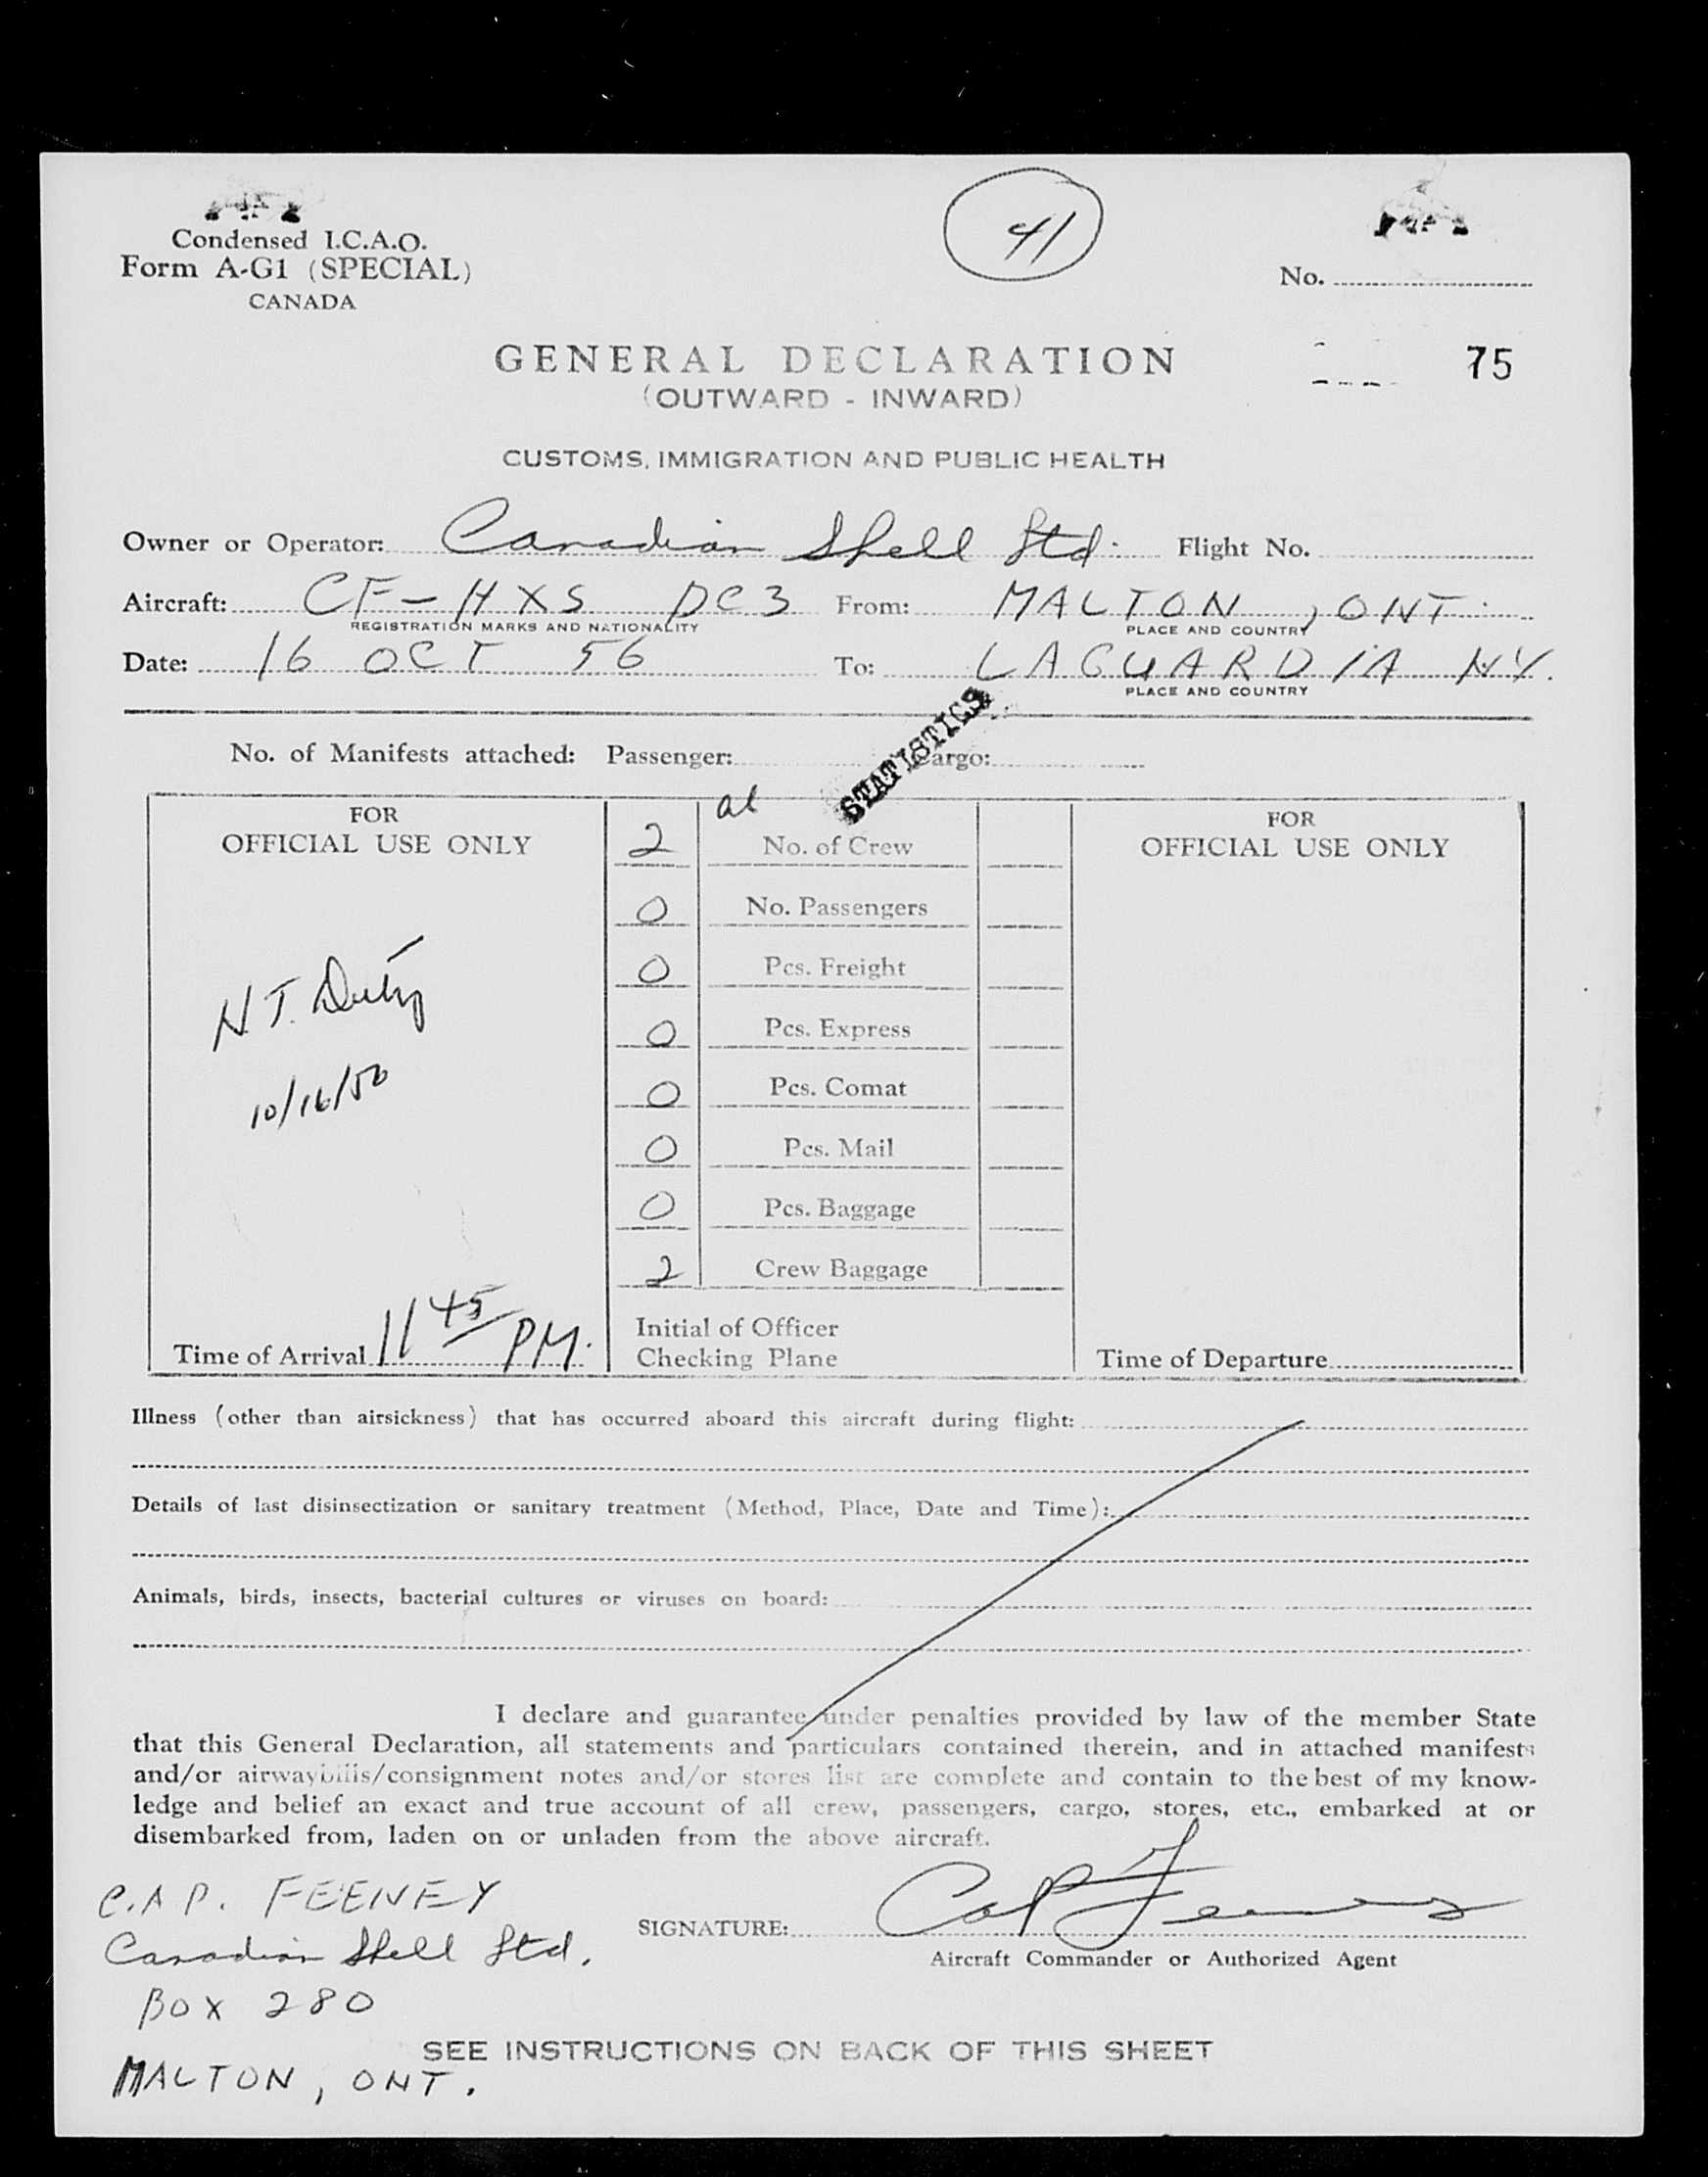 Condensed I.C.A.O.
Form A-G1 (SPECIAL)
CANADA
41
No.
75
GENERAL DECLARATION
(OUTWARD - INWARD)
CUSTOMS, IMMIGRATION AND PUBLIC HEALTH
Owner or Operator: Canadian Shell Ltd. Flight No.
Aircraft: CF-HXS DC3 From: MALTON, ONT.
REGISTRATION MARKS AND NATIONALITY PLACE AND COUNTRY
Date: 16 OCT 56 To: LAGUARDIA NY.
PLACE AND COUNTRY
STATISTICS
No. of Manifests attached: Passenger: Cargo:
FOR
OFFICIAL USE ONLY
N.T.
10/16/56
Time of Arrival 11 45 PM.
al
2 No. of Crew
0 No. Passengers
0 Pcs. Freight
0 Pcs. Express
0 Pcs. Comat
0 Pcs. Mail
0 Pcs. Baggage
2 Crew Baggage
Initial of Officer
Checking Plane
FOR
OFFICIAL USE ONLY
Time of Departure
Illness (other than airsickness) that has occurred aboard this aircraft during flight:
Details of last disinsectization or sanitary treatment (Method, Place, Date and Time):
Animals, birds, insects, bacterial cultures or viruses on board:
I declare and guarantee under penalties provided by law of the member State
that this General Declaration, all statements and particulars contained therein, and in attached manifests
and/or airwaybills/consignment notes and/or stores list are complete and contain to the best of my know-
ledge and belief an exact and true account of all crew, passengers, cargo, stores, etc., embarked at or
disembarked from, laden on or unladen from the above aircraft.
C.A.P. FEENEY
Canadian Shell Ltd.
BOX 280
MALTON, ONT.
SIGNATURE: CAP Feeney
Aircraft Commander or Authorized Agent
SEE INSTRUCTIONS ON BACK OF THIS SHEET